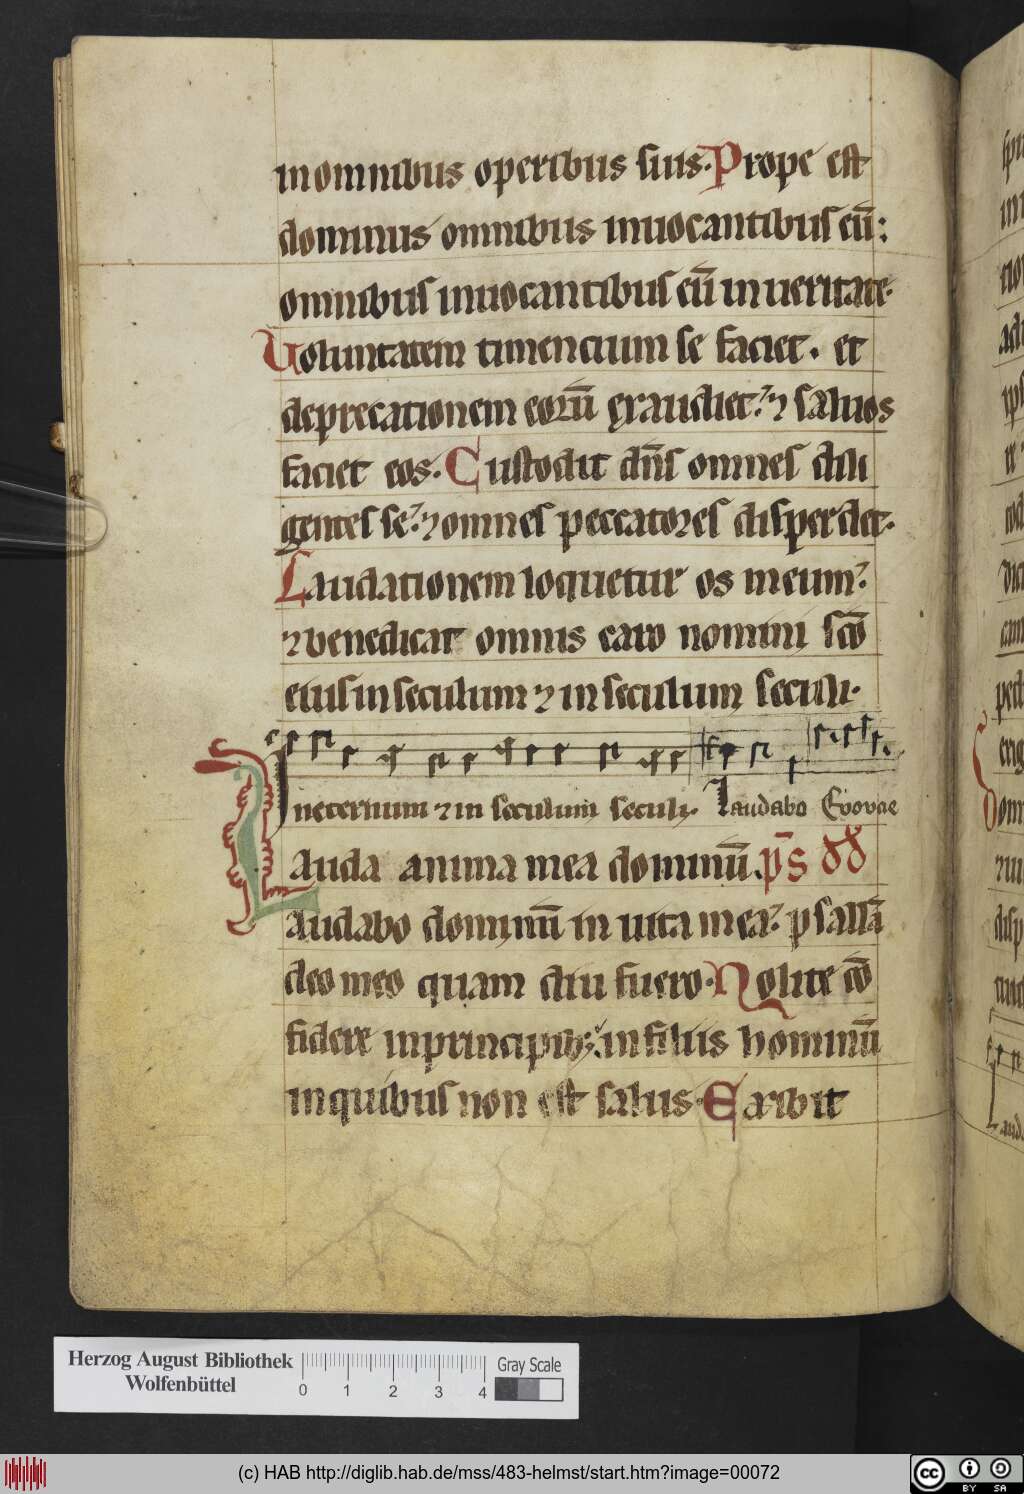 in omnibus operibus suis. Prope est
dominus omnibus inuocantibus eū:
omnibus inuocantibus eū in ueritate.
Uoluntatem timencium se faciet. et
deprecationem eorū exaudiet: ⁊ saluos
faciet eos. Custodit dn̄s omnes dili
gentes se: ⁊ omnes peccatores disperdet.
Laudationem loquetur os meum:
⁊ benedicat omnis caro nomini scō
eius in seculum ⁊ in seculum seculi.
In eternum ⁊ in seculum seculi. Laudabo Evovae
Lauda anima mea dominū. p̄s dd
audabo dominū in uita mea: psallā
deo meo quam diu fuero. Nolite cō
fidere in principibꝫ: in filiis hominū
in quibus non est salus. Exibit
Herzog August Bibliothek
Wolfenbüttel
0 1 2 3 4
Gray Scale
(c) HAB http://diglib.hab.de/mss/483-helmst/start.htm?image=00072
cc BY SA